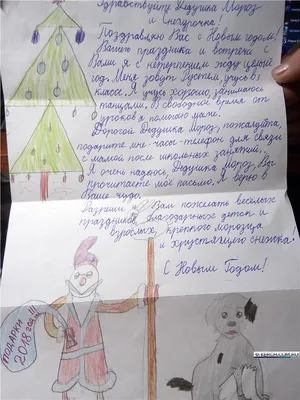 Здравствуйте Дедушка Мороз
и Снегурочка!
Поздравляю Вас с Новым годом!
Вашего праздника и встречи с
Вами я с нетерпением жду целый
год. Меня зовут Рустем, учусь в 1
классе. Я учусь хорошо, занимаюсь
танцами. В свободное время от
уроков я помогаю маме.
Дорогой Дедушка Мороз, пожалуйста,
подарите мне часы-телефон для связи
с мамой после школьных занятий.
Я очень надеюсь, Дедушка Мороз, Вы
прочитаете мое письмо. Я верю в
Ваше чудо.
Разреши Вам пожелать веселых
праздников, благодарных деток и
взрослых, крепкого морозца
и хрустящего снежка.
С Новым Годом!
ПОДАРКИ
2018 год!!!
© KERCH.COM.RU